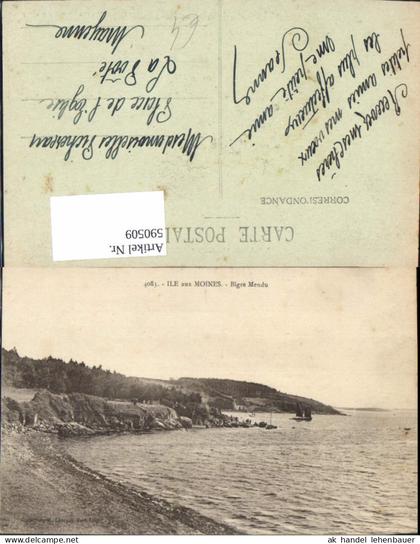 CARTE POSTALE
CORRESPONDANCE
Recevez, mes chères
petites amies mes vœux
les plus affectueux
Jeanne
Mesdemoiselles
Place de l'Eglise
La Poôté
Mayenne
64
Artikel Nr.
590509
4083. - ILE aux MOINES. - Biges Mendu
ak handel lehenbauer